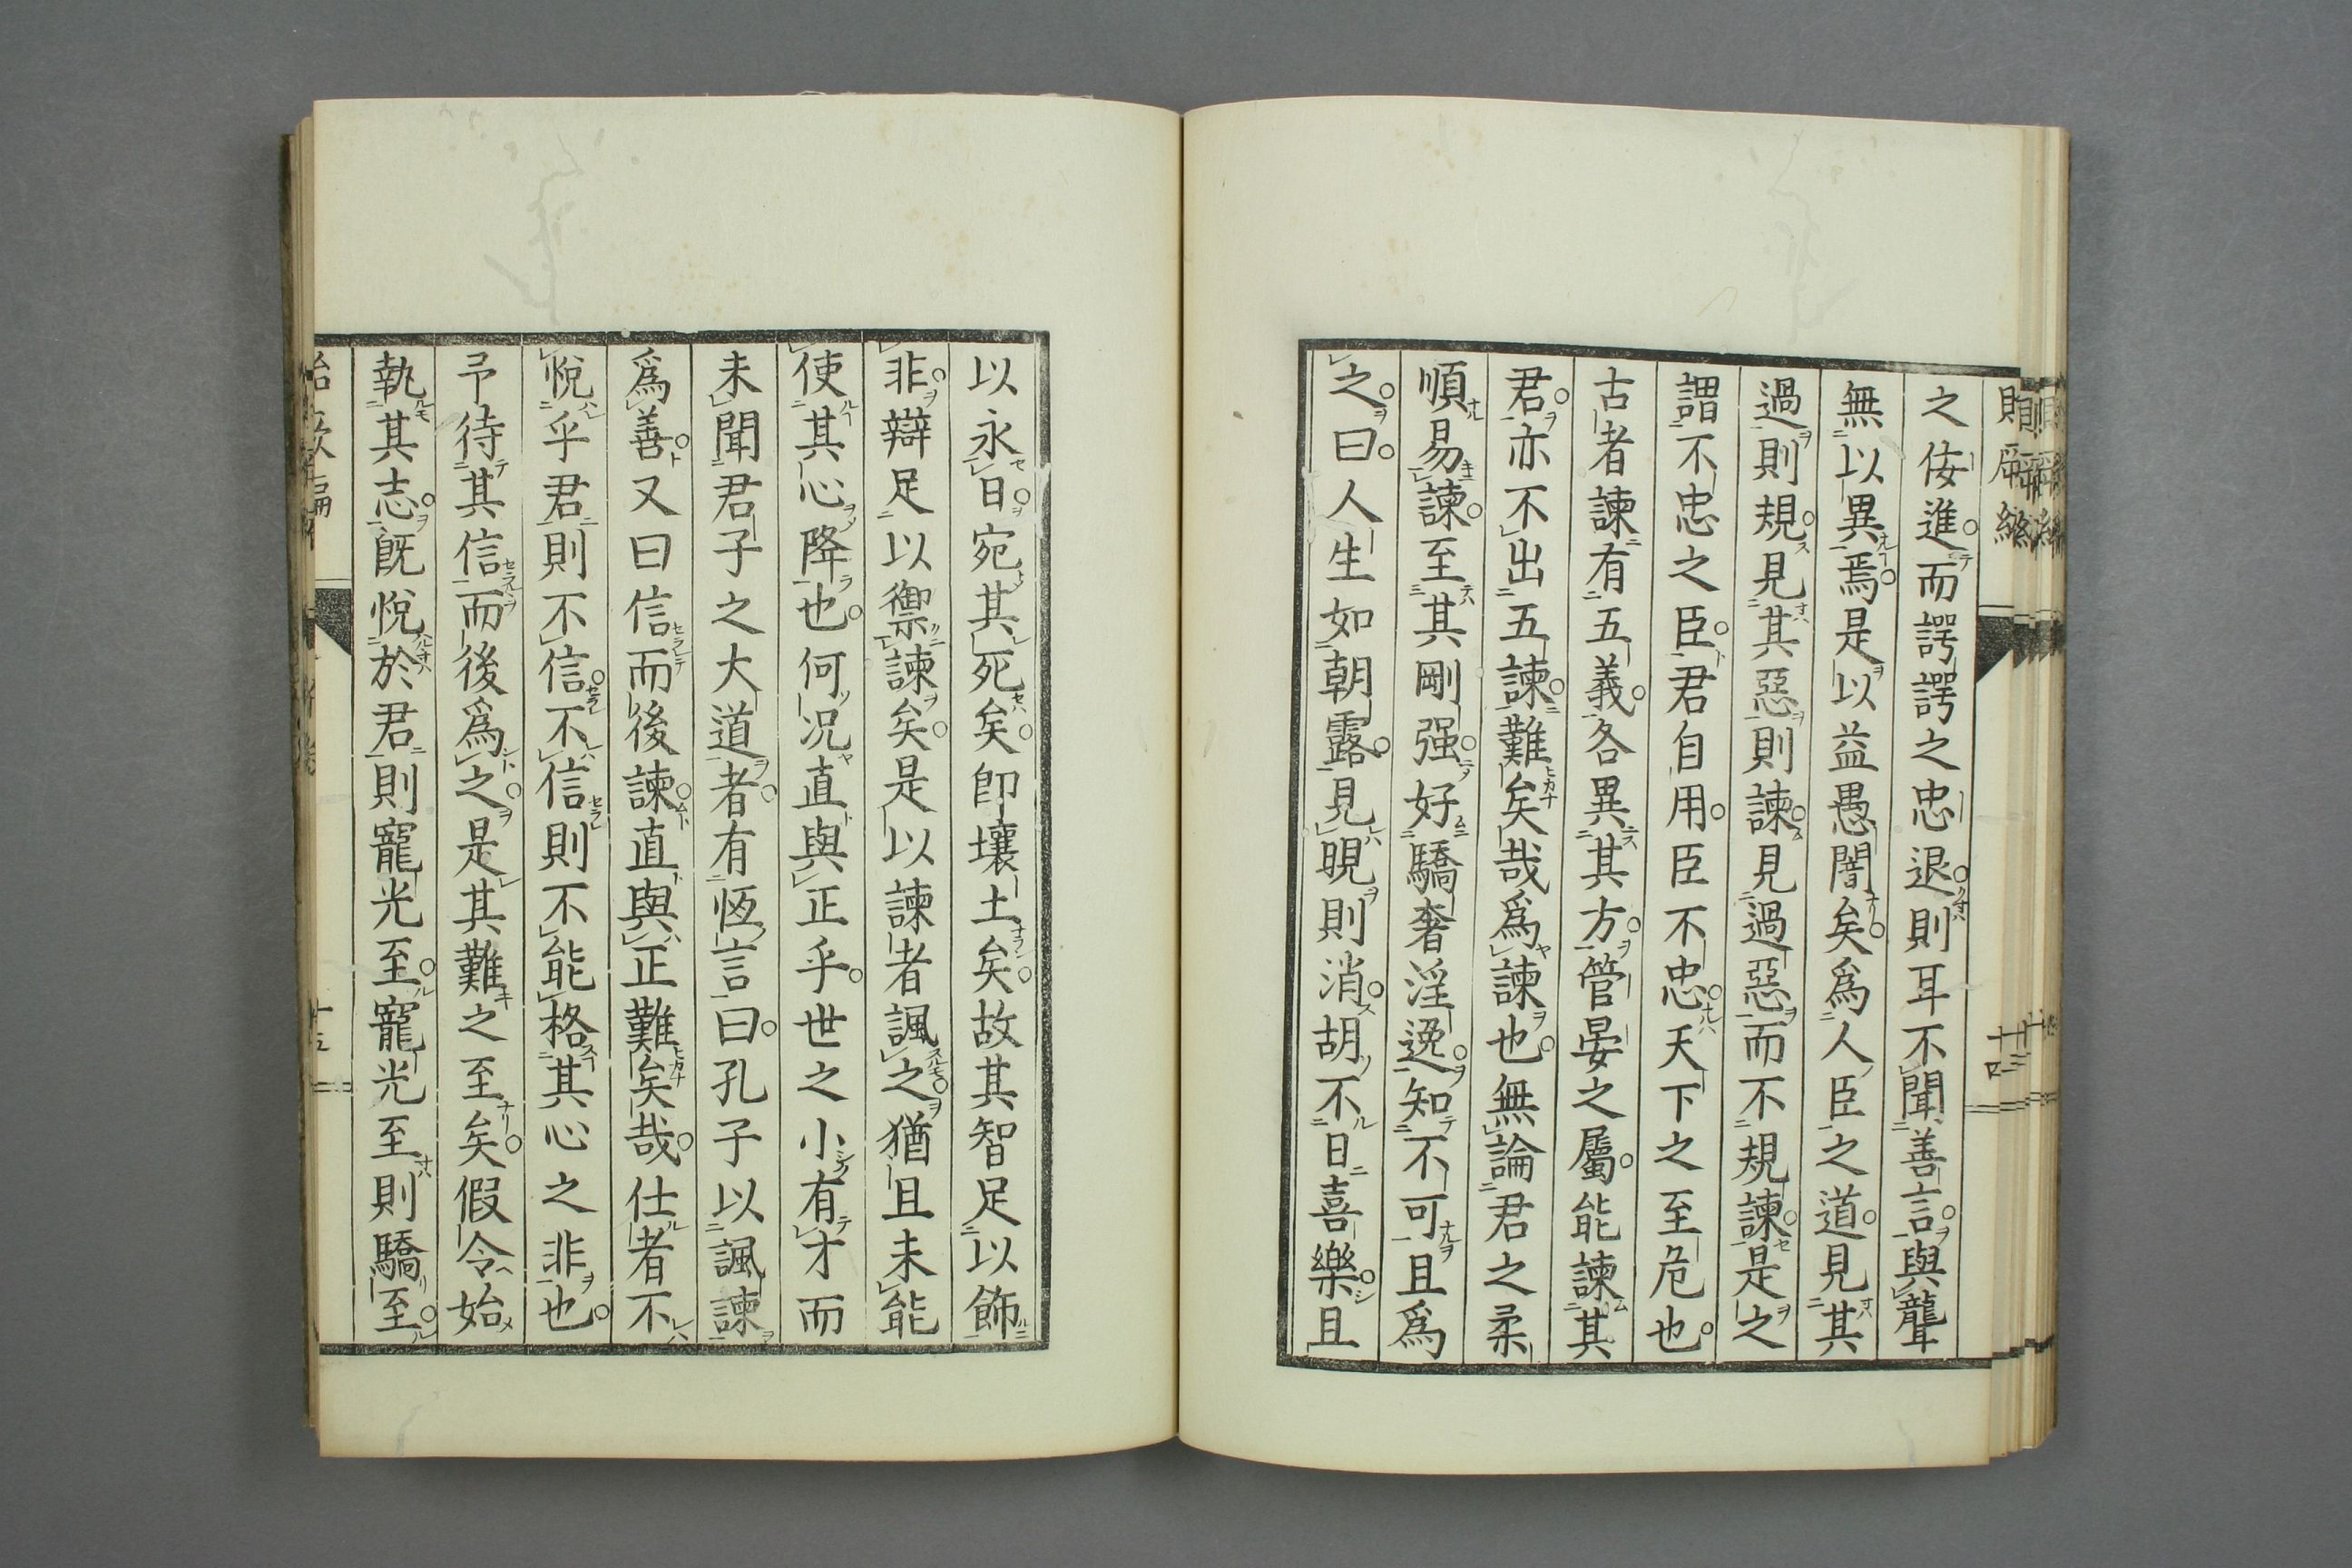 之佞進而諤諤之忠退則耳不聞善言與聾
無以異焉是以益愚闇矣爲人臣之道見其
過則規見其惡則諫見過惡而不規諫是之
謂不忠之臣君自用臣不忠天下之至危也
古者諫有五義各異其方管晏之屬能諫其
君亦不出五諫難矣哉爲諫也無論君之柔
順易諫至其剛强好驕奢淫逸知不可且爲
之曰人生如朝露見晛則消胡不日喜樂且
以永日宛其死矣卽壤土矣故其智足以飾
非辯足以禦諫矣是以諫者諷之猶且未能
使其心降也何况直與正乎世之小有才而
未聞君子之大道者有恆言曰孔子以諷諫
爲善又曰信而後諫直與正難矣哉仕者不
悅乎君則不信不信則不能格其心之非也
予待其信而後爲之是其難之至矣假令始
執其志旣悅於君則寵光至寵光至則驕至
十四